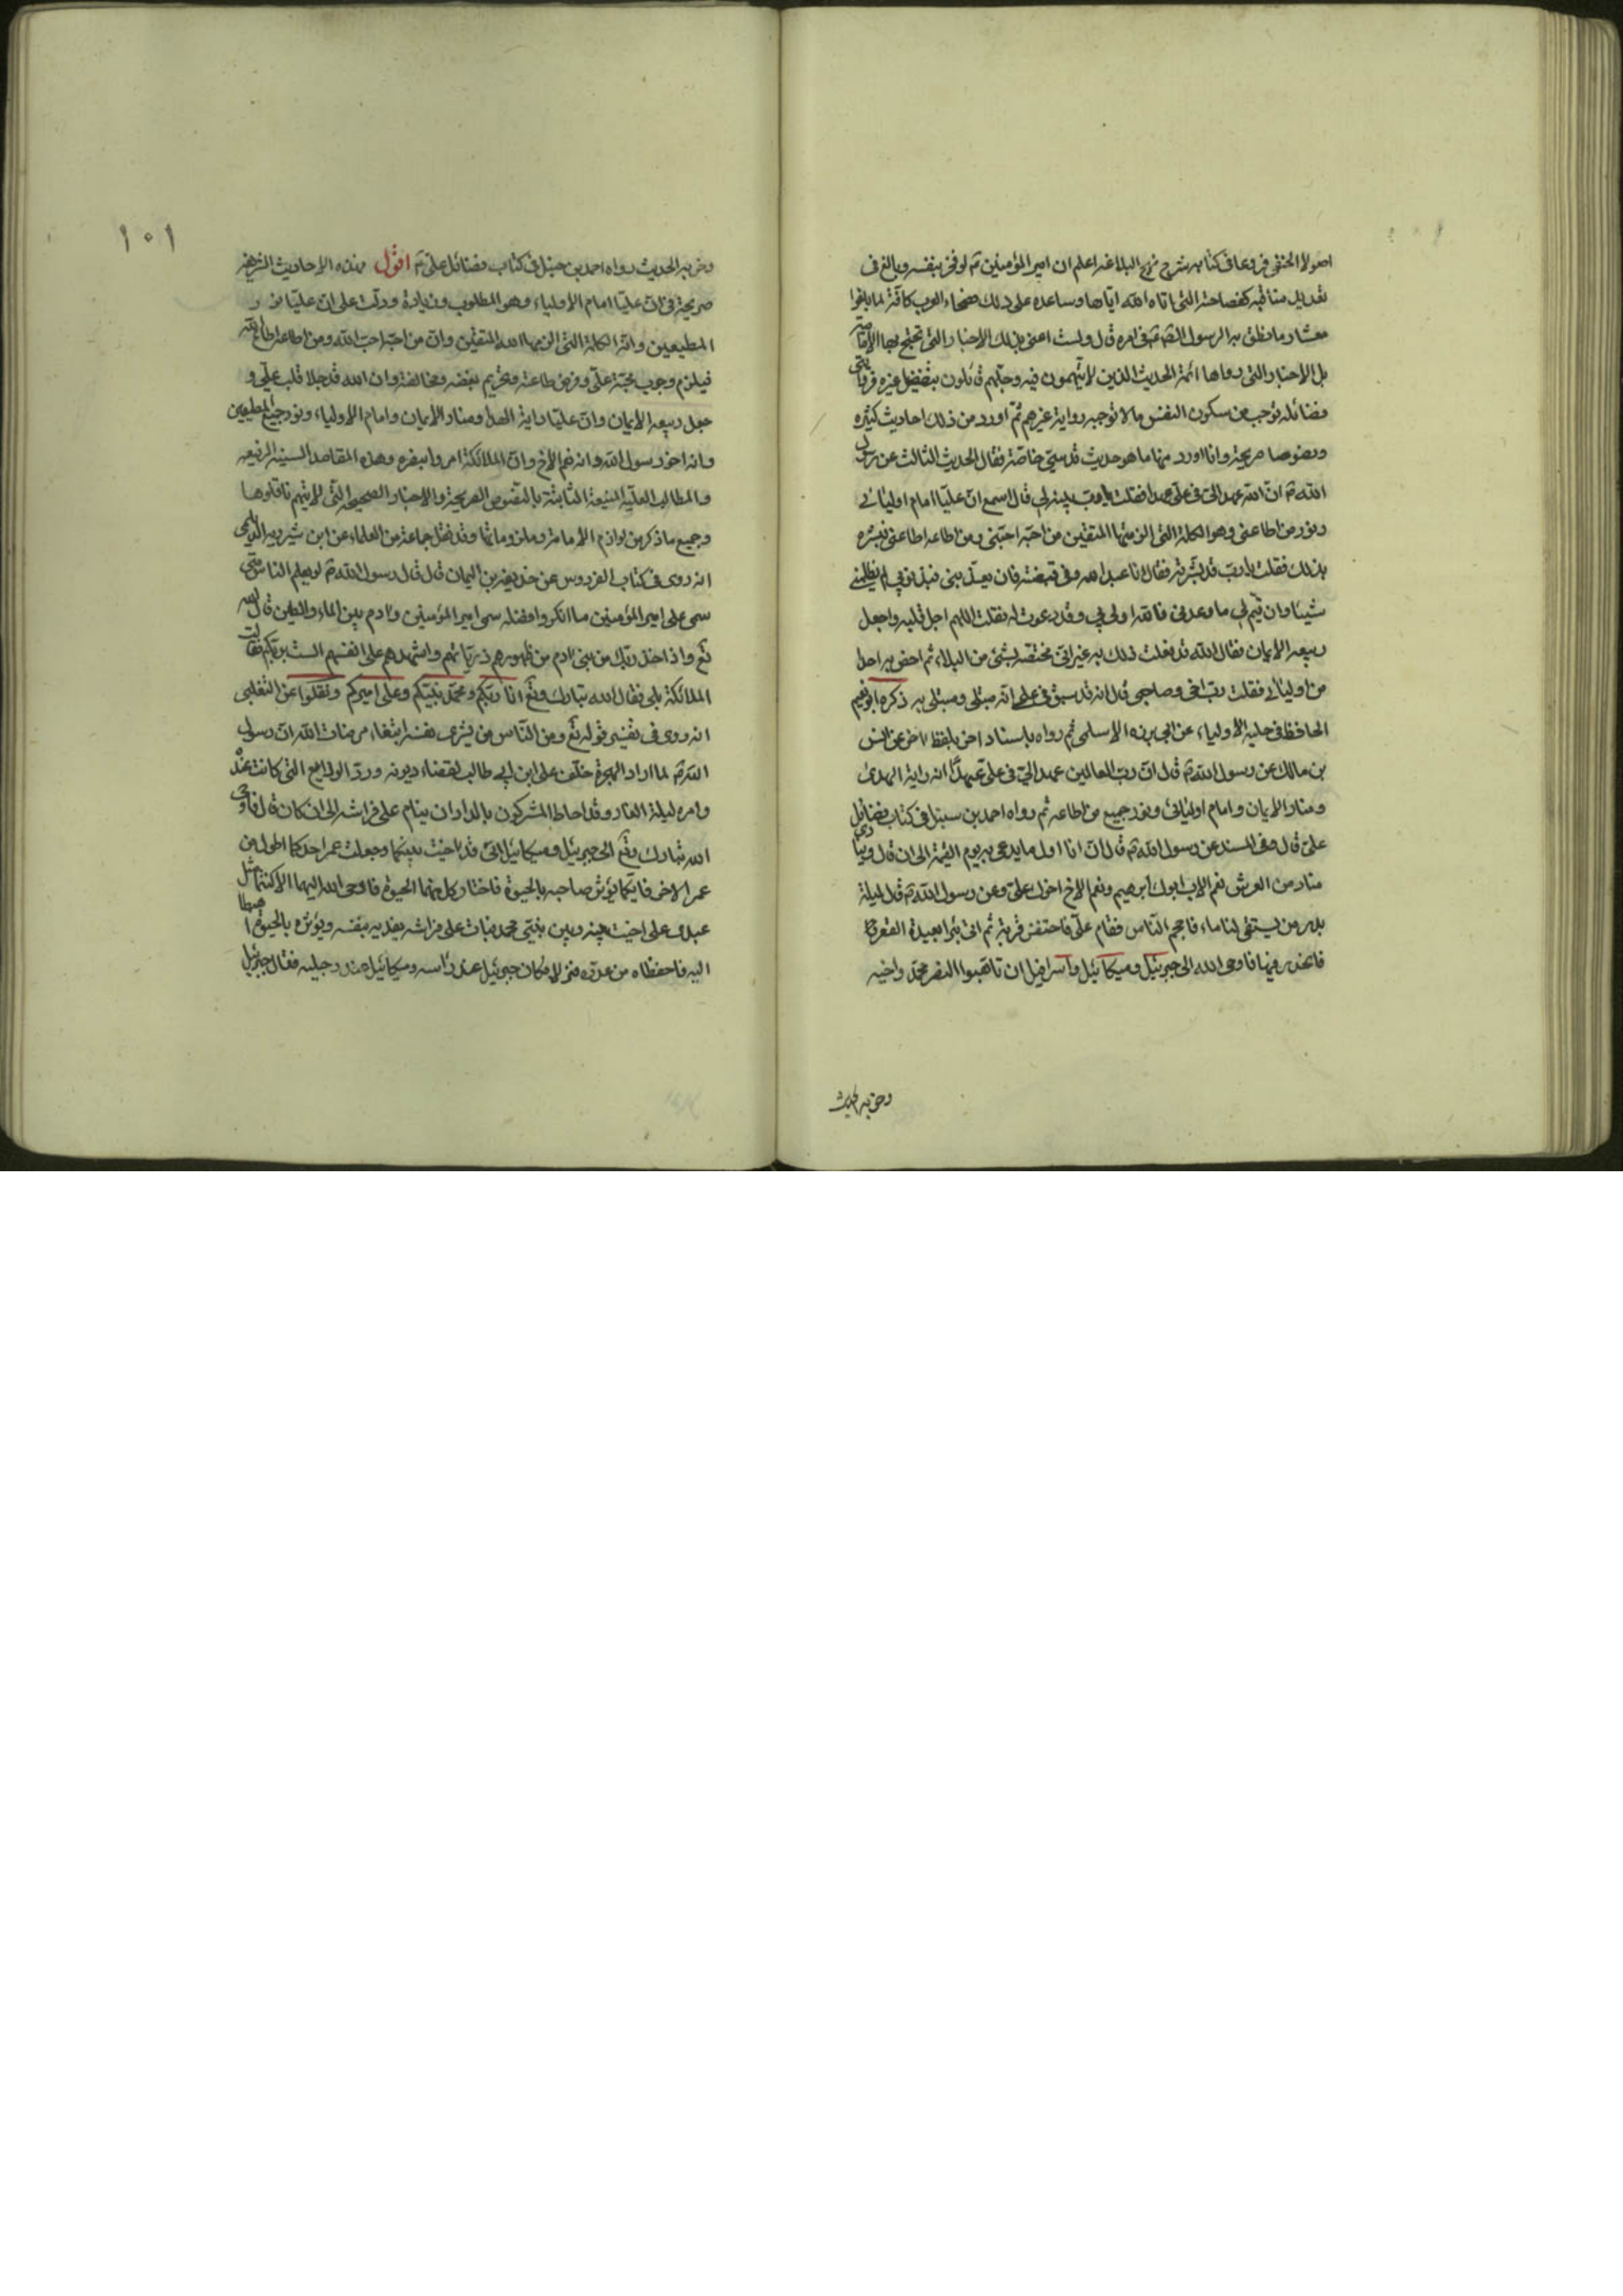 اصولا الحنفى فروعا فى كتابه شرح نهج البلاغه اعلم ان امير المؤمنين ع لو فخر بنفسه وبالغ فى
تعديل مناقبه كفصاحته التى اتاه الله اياها وساعده على ذلك فصحاء العرب كافة لما بلغوا
معشار ما نطق به الرسول الص فى امره قال ولست اعنى بذلك الاخبار التى تحتج بها الامامية
بل الاخبار التى رواها ائمة الحديث الذين لا يتهمون فيه وجلهم قائلون بتفضيل غيره فروايتى
فضائله توجب من سكون النفس ما لا توجبه رواية غيرهم ثم اورد من ذلك احاديث كثيره
ونصوصا صريحة وانا اورد منها ما هو حديث قدسى خاصة فقال الحديث الثالث عن رسول
الله ص ان الله عهد الى فى على عهدا فقلت يا رب بينه لى قال اسمع ان عليا امام اوليائى
ونور من اطاعنى وهو الكلمة التى الزمتها المتقين من احبه احبنى ومن اطاعه اطاعنى فبشره
بذلك فقلت يا رب قد بشرته فقال انا عبد الله وفى قبضته فان يعذبنى فبذنوبى لم يظلمنى
شيئا وان يتم لى ما وعدنى فالله اولى بى وقد دعوت له فقلت اللهم اجل قلبه واجعل
ربيعه الايمان فقال الله قد فعلت ذلك به غير انى مختصه بشئ من البلاء لم اخص به احدا
من اوليائى فقلت رب اخى وصاحبى قال انه قد سبق فى علمى انه مبتلى ومبتلى به ذكره ابو نعيم
الحافظ فى حلية الاولياء عن ابى برزه الاسلمى ثم رواه باسناد اخر بلفظ اخر عن انس
بن مالك عن رسول الله ص قال ان رب العالمين عهد الى فى على عهدا انه راية الهدى
ومنار الايمان وامام اوليائى ونور جميع من اطاعه ثم رواه احمد بن حنبل فى كتاب فضائل
على قال وفى المسند عن رسول الله ص قال ان انا اول ما يدعى به يوم القيمة الى ان قال وينادى
مناد من العرش نعم الاب ابوك ابرهيم ونعم الاخ اخوك على وعن رسول الله ص قال ليلة
بدر من يستقى لنا ماء فاحجم الناس فقام على فاحتضن قربة ثم اتى بئرا بعيدة القعر
فانحدر فيها فاوحى الله الى جبرئيل وميكائيل واسرافيل ان تاهبوا النصر محمد واخيه
وحزبه الحديث
١٠١
وحزبه الحديث رواه احمد بن حنبل فى كتاب فضائل على ع اقول هذه الاحاديث الشريفه
صريحة فى ان عليا امام الاولياء وهو المطلوب وزيادة ودلت على ان عليا نور
المطيعين وانه الكلمة التى الزمها الله المتقين وان من احبه احب الله ومن اطاعه اطاع الله
فيلزم وجوب محبة على وفرض طاعته وتحريم بغضه ومخالفته وان الله قد جلا قلب على و
جعل ربيعه الايمان وان عليا راية الهدى ومنار الايمان وامام الاولياء ونور جميع المطيعين
وانه اخو رسول الله وانه نعم الاخ وان الملائكة امروا بنصره وهذه المقاصد السنيه الرفيعه
والمطالب العليه المنيعه الثابتة بالنصوص الصريحة والاخبار الصحيحه التى لا يتهم ناقلوها
وجميع ما ذكر من لوازم الامامة وملزوماتها وقد نقل جماعة من العلماء عن ابن شيرويه الديلمى
انه روى فى كتاب الفردوس عن حذيفة بن اليمان قال قال رسول الله ص لو يعلم الناس متى
سمى على امير المؤمنين ما انكروا فضله سمى امير المؤمنين وادم بين الماء والطين قال الله
تع واذ اخذ ربك من بنى ادم من ظهورهم ذرياتهم واشهدهم على انفسهم الست بربكم فقالت
الملائكة بلى فقال الله تبارك وتع انا ربكم ومحمد نبيكم وعلى اميركم ونقلوا عن الثعلبى
انه روى فى تفسير قوله تع ومن الناس من يشرى نفسه ابتغاء مرضات الله ان رسول
الله ص لما اراد الهجرة خلف على ابن ابى طالب لقضاء ديونه ورد الودايع التى كانت عنده
وامره ليلة الغار وقد احاط المشركون بالدار ان ينام على فراشه الى ان كان قال فاوحى
الله تبارك وتع الى جبرئيل وميكائيل انى قد اخيت بينكما وجعلت عمر احدكما اطول من
عمر الاخر فايكما يؤثر صاحبه بالحيوة فاختار كل منهما الحيوة فاوحى الله اليهما الا كنتما مثل
عبدى على اخيت بينه وبين نبيى محمد فبات على فراشه يفديه بنفسه ويؤثره بالحيوة اهبطا
اليه فاحفظاه من عدوه فنزلا فكان جبرئيل عند راسه وميكائيل عند رجليه فقال جبرئيل